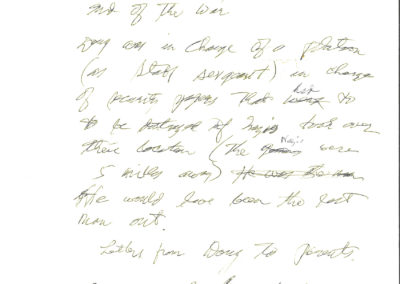 end of the war
Doug was in charge of a platoon
(as Staff sergeant) in charge
of security papers that had to
to be destroyed if Nazis took over
their location (the Nazis were
5 miles away) He was the
He would have been the last
man out.
Letters from Doug to parents.